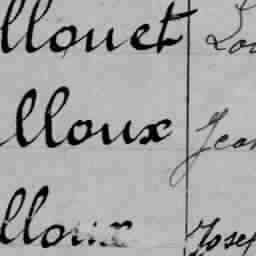 llouet Lou
lloux Jean
lloux Josep